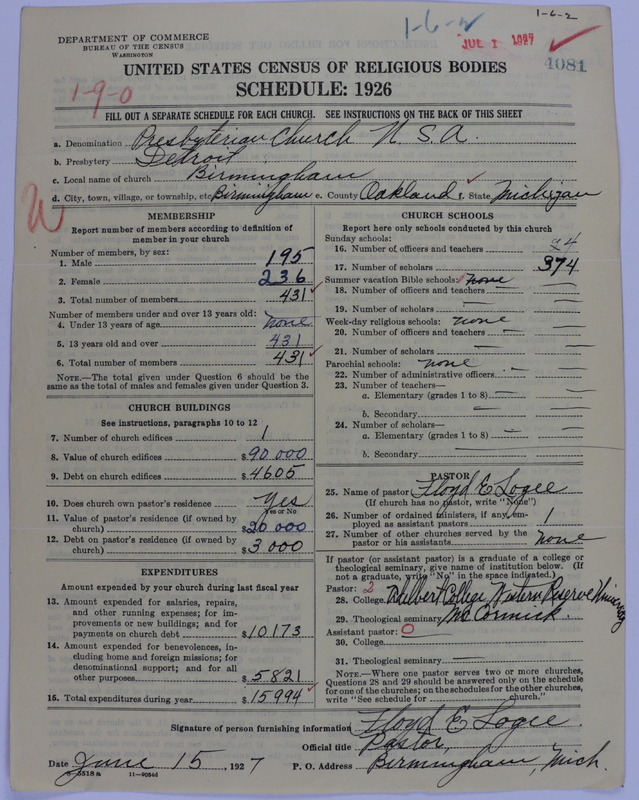 1-6-2
1-6-2
JUL 1 1927
4081
DEPARTMENT OF COMMERCE
BUREAU OF THE CENSUS
WASHINGTON
UNITED STATES CENSUS OF RELIGIOUS BODIES
SCHEDULE: 1926
1-9-0
FILL OUT A SEPARATE SCHEDULE FOR EACH CHURCH. SEE INSTRUCTIONS ON THE BACK OF THIS SHEET
a. Denomination Presbyterian Church U.S.A.
b. Presbytery Detroit
c. Local name of church Birmingham
d. City, town, village, or township, etc. Birmingham e. County Oakland f. State Michigan
MEMBERSHIP
Report number of members according to definition of
member in your church
Number of members, by sex:
1. Male 195
2. Female 236
3. Total number of members 431
Number of members under and over 13 years old:
4. Under 13 years of age none
5. 13 years old and over 431
6. Total number of members 431
NOTE.—The total given under Question 6 should be the
same as the total of males and females given under Question 3.
CHURCH BUILDINGS
See instructions, paragraphs 10 to 12
7. Number of church edifices 1
8. Value of church edifices $90.000
9. Debt on church edifices $4605
10. Does church own pastor's residence Yes
Yes or No
11. Value of pastor's residence (if owned by
church) $20 000
12. Debt on pastor's residence (if owned by
church) $3 000
EXPENDITURES
Amount expended by your church during last fiscal year
13. Amount expended for salaries, repairs,
and other running expenses; for im-
provements or new buildings; and for
payments on church debt $10173
14. Amount expended for benevolences, in-
cluding home and foreign missions; for
denominational support; and for all
other purposes $5821
15. Total expenditures during year $15994
CHURCH SCHOOLS
Report here only schools conducted by this church
Sunday schools:
16. Number of officers and teachers
17. Number of scholars 374
Summer vacation Bible schools: none
18. Number of officers and teachers
19. Number of scholars
Week-day religious schools: none
20. Number of officers and teachers
21. Number of scholars
Parochial schools: none
22. Number of administrative officers
23. Number of teachers—
a. Elementary (grades 1 to 8)
b. Secondary
24. Number of scholars—
a. Elementary (grades 1 to 8)
b. Secondary
PASTOR
25. Name of pastor Floyd E Logee
(If church has no pastor, write "None")
26. Number of ordained ministers, if any, em-
ployed as assistant pastors 1
27. Number of other churches served by the
pastor or his assistants none
If pastor (or assistant pastor) is a graduate of a college or
theological seminary, give name of institution below. (If
not a graduate, write "No" in the space indicated.)
Pastor: 2
28. College College Western Reserve University
29. Theological seminary McCormick
Assistant pastor: 0
30. College
31. Theological seminary
NOTE.—Where one pastor serves two or more churches,
Questions 28 and 29 should be answered only on the schedule
for one of the churches; on the schedules for the other churches,
write "See schedule for church."
Signature of person furnishing information Floyd E Logee.
Official title Pastor,
Date June 15, 1927 P. O. Address Birmingham, Mich.
8-5518a 11-9054d